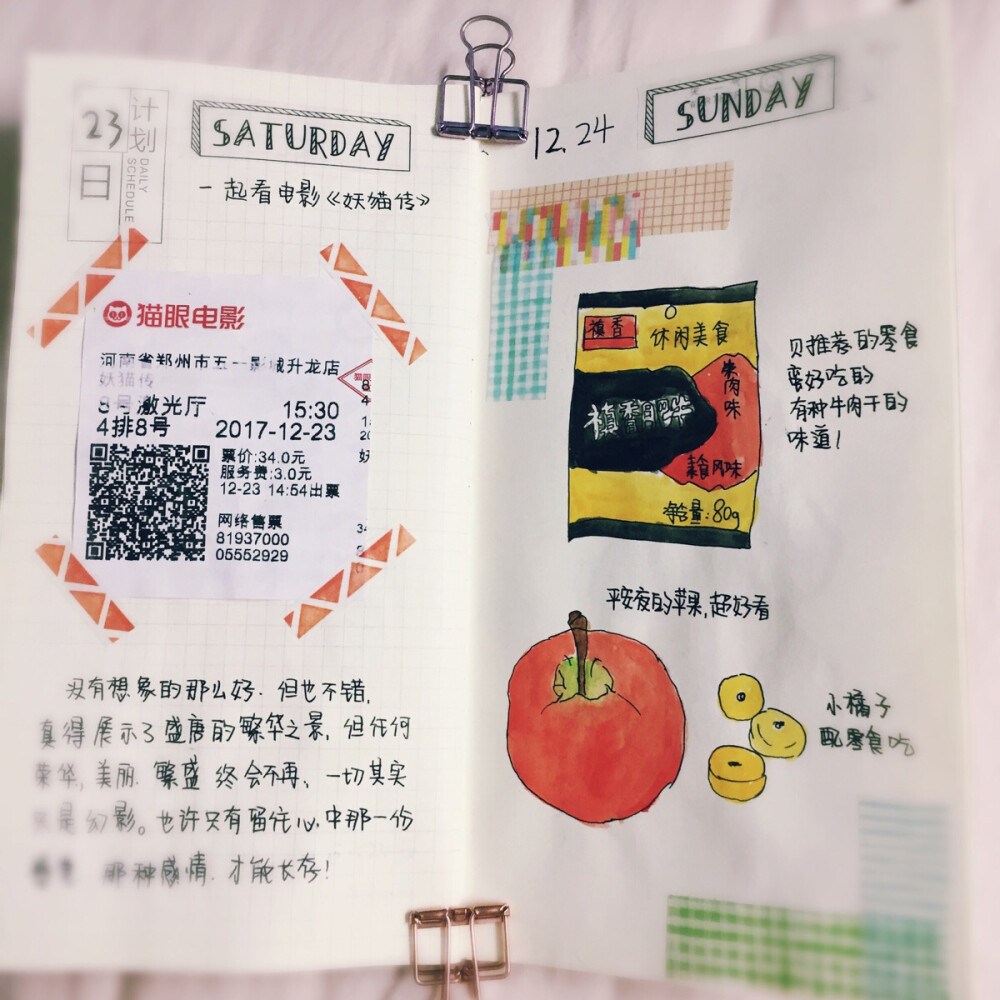 23
日
计划
DAILY SCHEDULE
SATURDAY
一起看电影《妖猫传》
猫眼电影
河南省郑州市五一影城升龙店
妖猫传
8号激光厅 15:30
4排8号 2017-12-23
票价:34.0元
服务费:3.0元
12-23 14:54出票
网络售票
81937000
05552929
没有想象的那么好.但也不错,
真得展示了盛唐的繁华之景,但任何
荣华,美丽.繁盛 终会不再,一切其实
是幻影。也许只有留住心中那一份
那种感情.才能长存!
12.24
SUNDAY
休闲美食
牛肉味
美食风味
净含量:80g
贝推荐的零食
蛮好吃的
有种牛肉干的
味道!
平安夜的苹果,超好看
小橘子
配零食吃